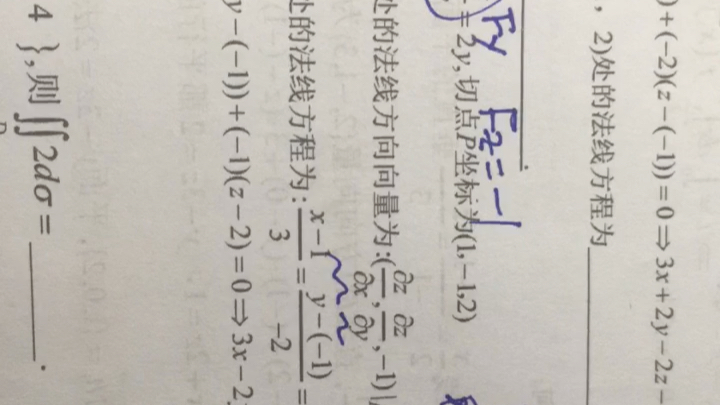 )+(−2)(z−(−1))=0⇒3x+2y−2z−
, 2)处的法线方程为______
.
Fy Fz=−1
=2y,切点P坐标为(1,−1,2)
处的法线方向向量为:(∂z/∂x,∂z/∂y,−1)|
处的法线方程为:(x−1)/3=(y−(−1))/−2=
y−(−1))+(−1)(z−2)=0⇒3x−2
4 },则∬2dσ=______.